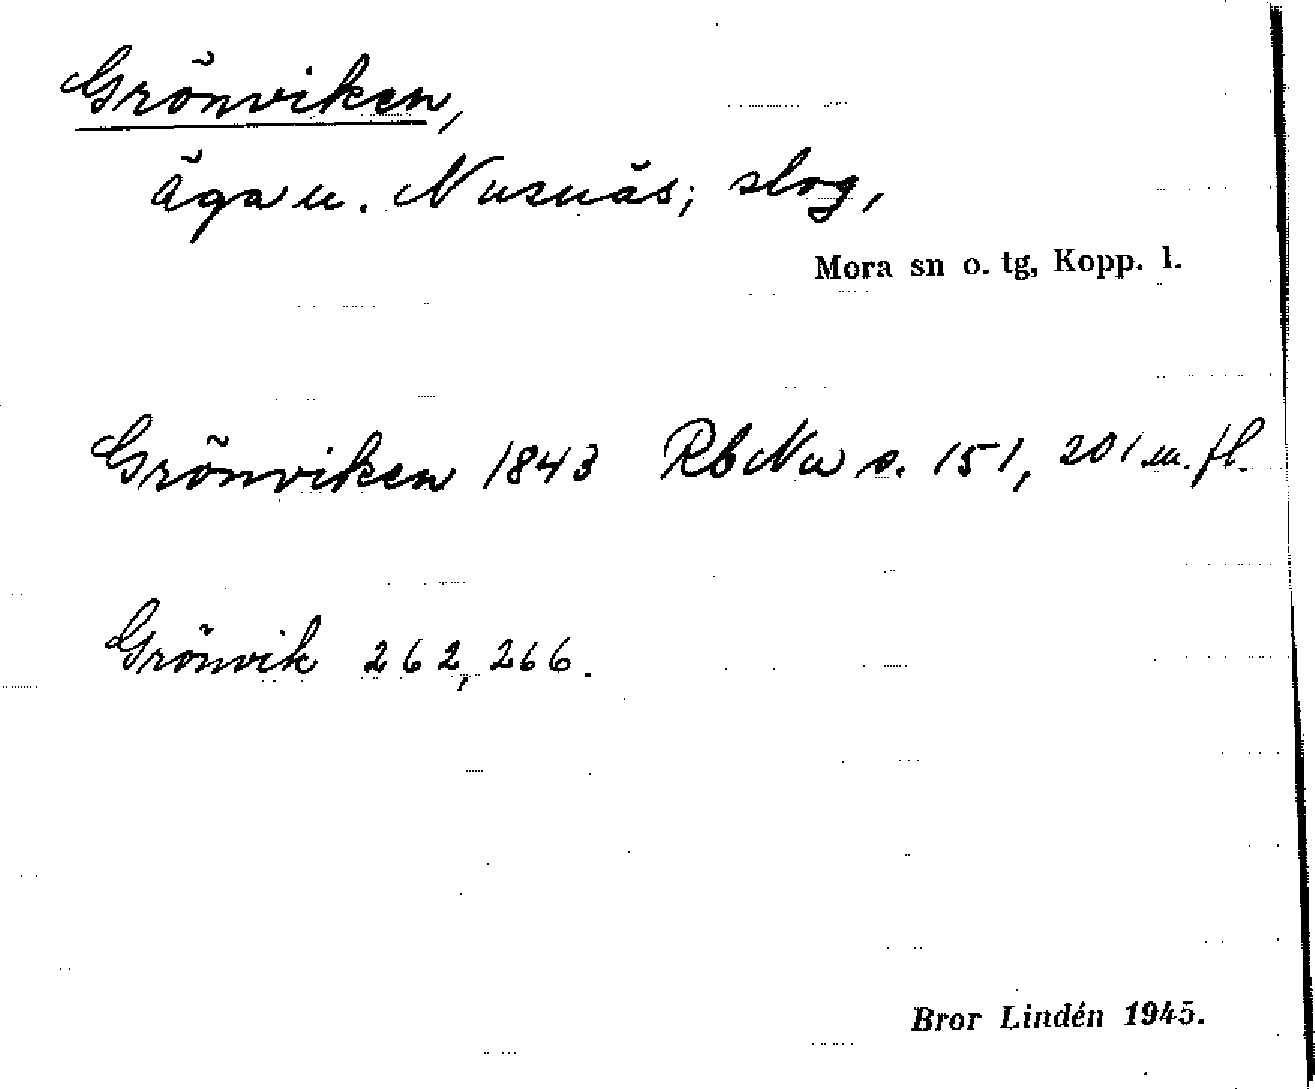 Grönviken,
äga u. Nusnäs; slog,
Mora sn o. tg, Kopp. l.
Grönviken 1843 Rb Nu s. 151, 201 m. fl.
Grönvik 262, 266.
Bror Lindén 1945.